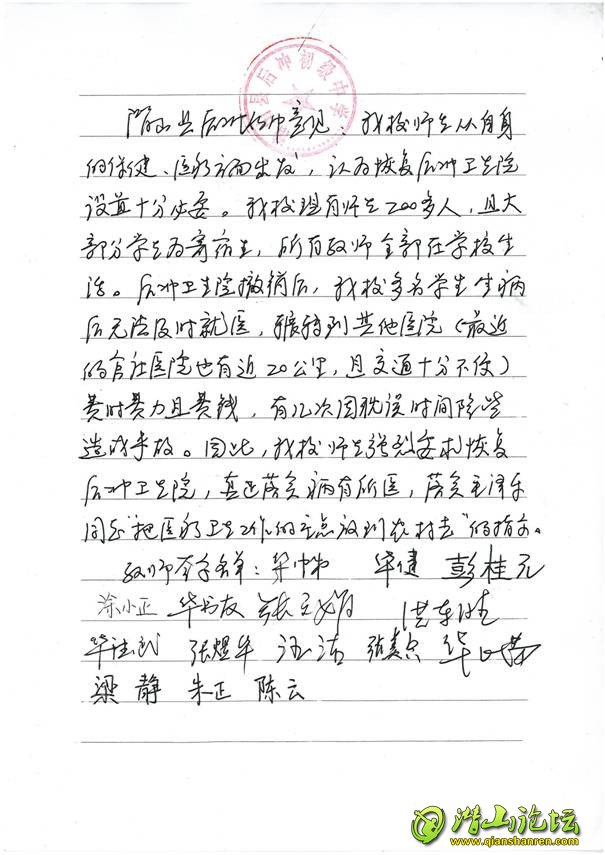 县后冲初级中学
潜山县后冲初中意见：我校师生从自身
的保健、医疗方面出发，认为恢复后冲卫生院
设置十分必要。我校现有师生200多人，且大
部分学生为寄宿生，所有教师全部在学校生
活。后冲卫生院撤销后，我校多名学生生病
后无法及时就医，辗转到其他医院（最近
的官庄医院也有近20公里，且交通十分不便）
费时费力且费钱，有几次因耽误时间险些
造成事故。因此，我校师生强烈要求恢复
后冲卫生院，真正落实病有所医，落实毛泽东
同志"把医疗卫生工作的重点放到农村去"的指示。
教师签字名单： 华健 彭桂元
涂小正 华书友
张煜华 汪洁
梁静 朱正 陈云
潜山论坛
www.qianshanren.com